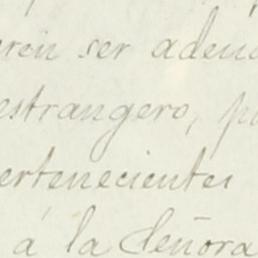 eren ser aden
estrangero, p
ertenecientes
á la Señora